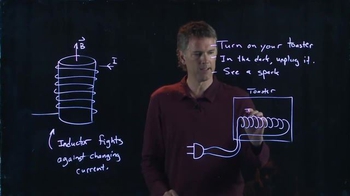 B
I
Inductor fights
against changing
current.
- Turn on your toaster
- In the dark, unplug it.
- See a spark
Toaster